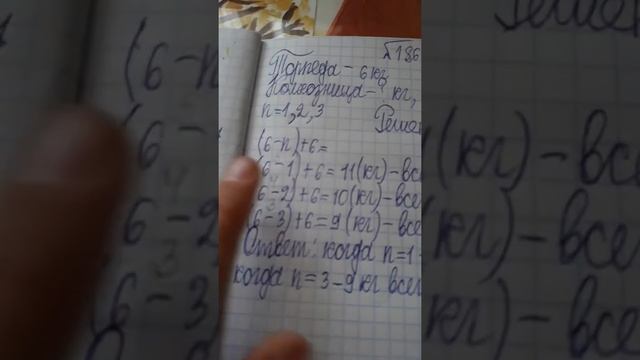 №186
Торпеда - 6 кг,
Колхозница - кг,
n=1,2,3
Решен
(6-n)+6=
(6-1)+6=11(кг)-все
(6-2)+6=10(кг)-все
(6-3)+6=9(кг)-все
Ответ: когда n=1-
когда n=3-9 кг всег